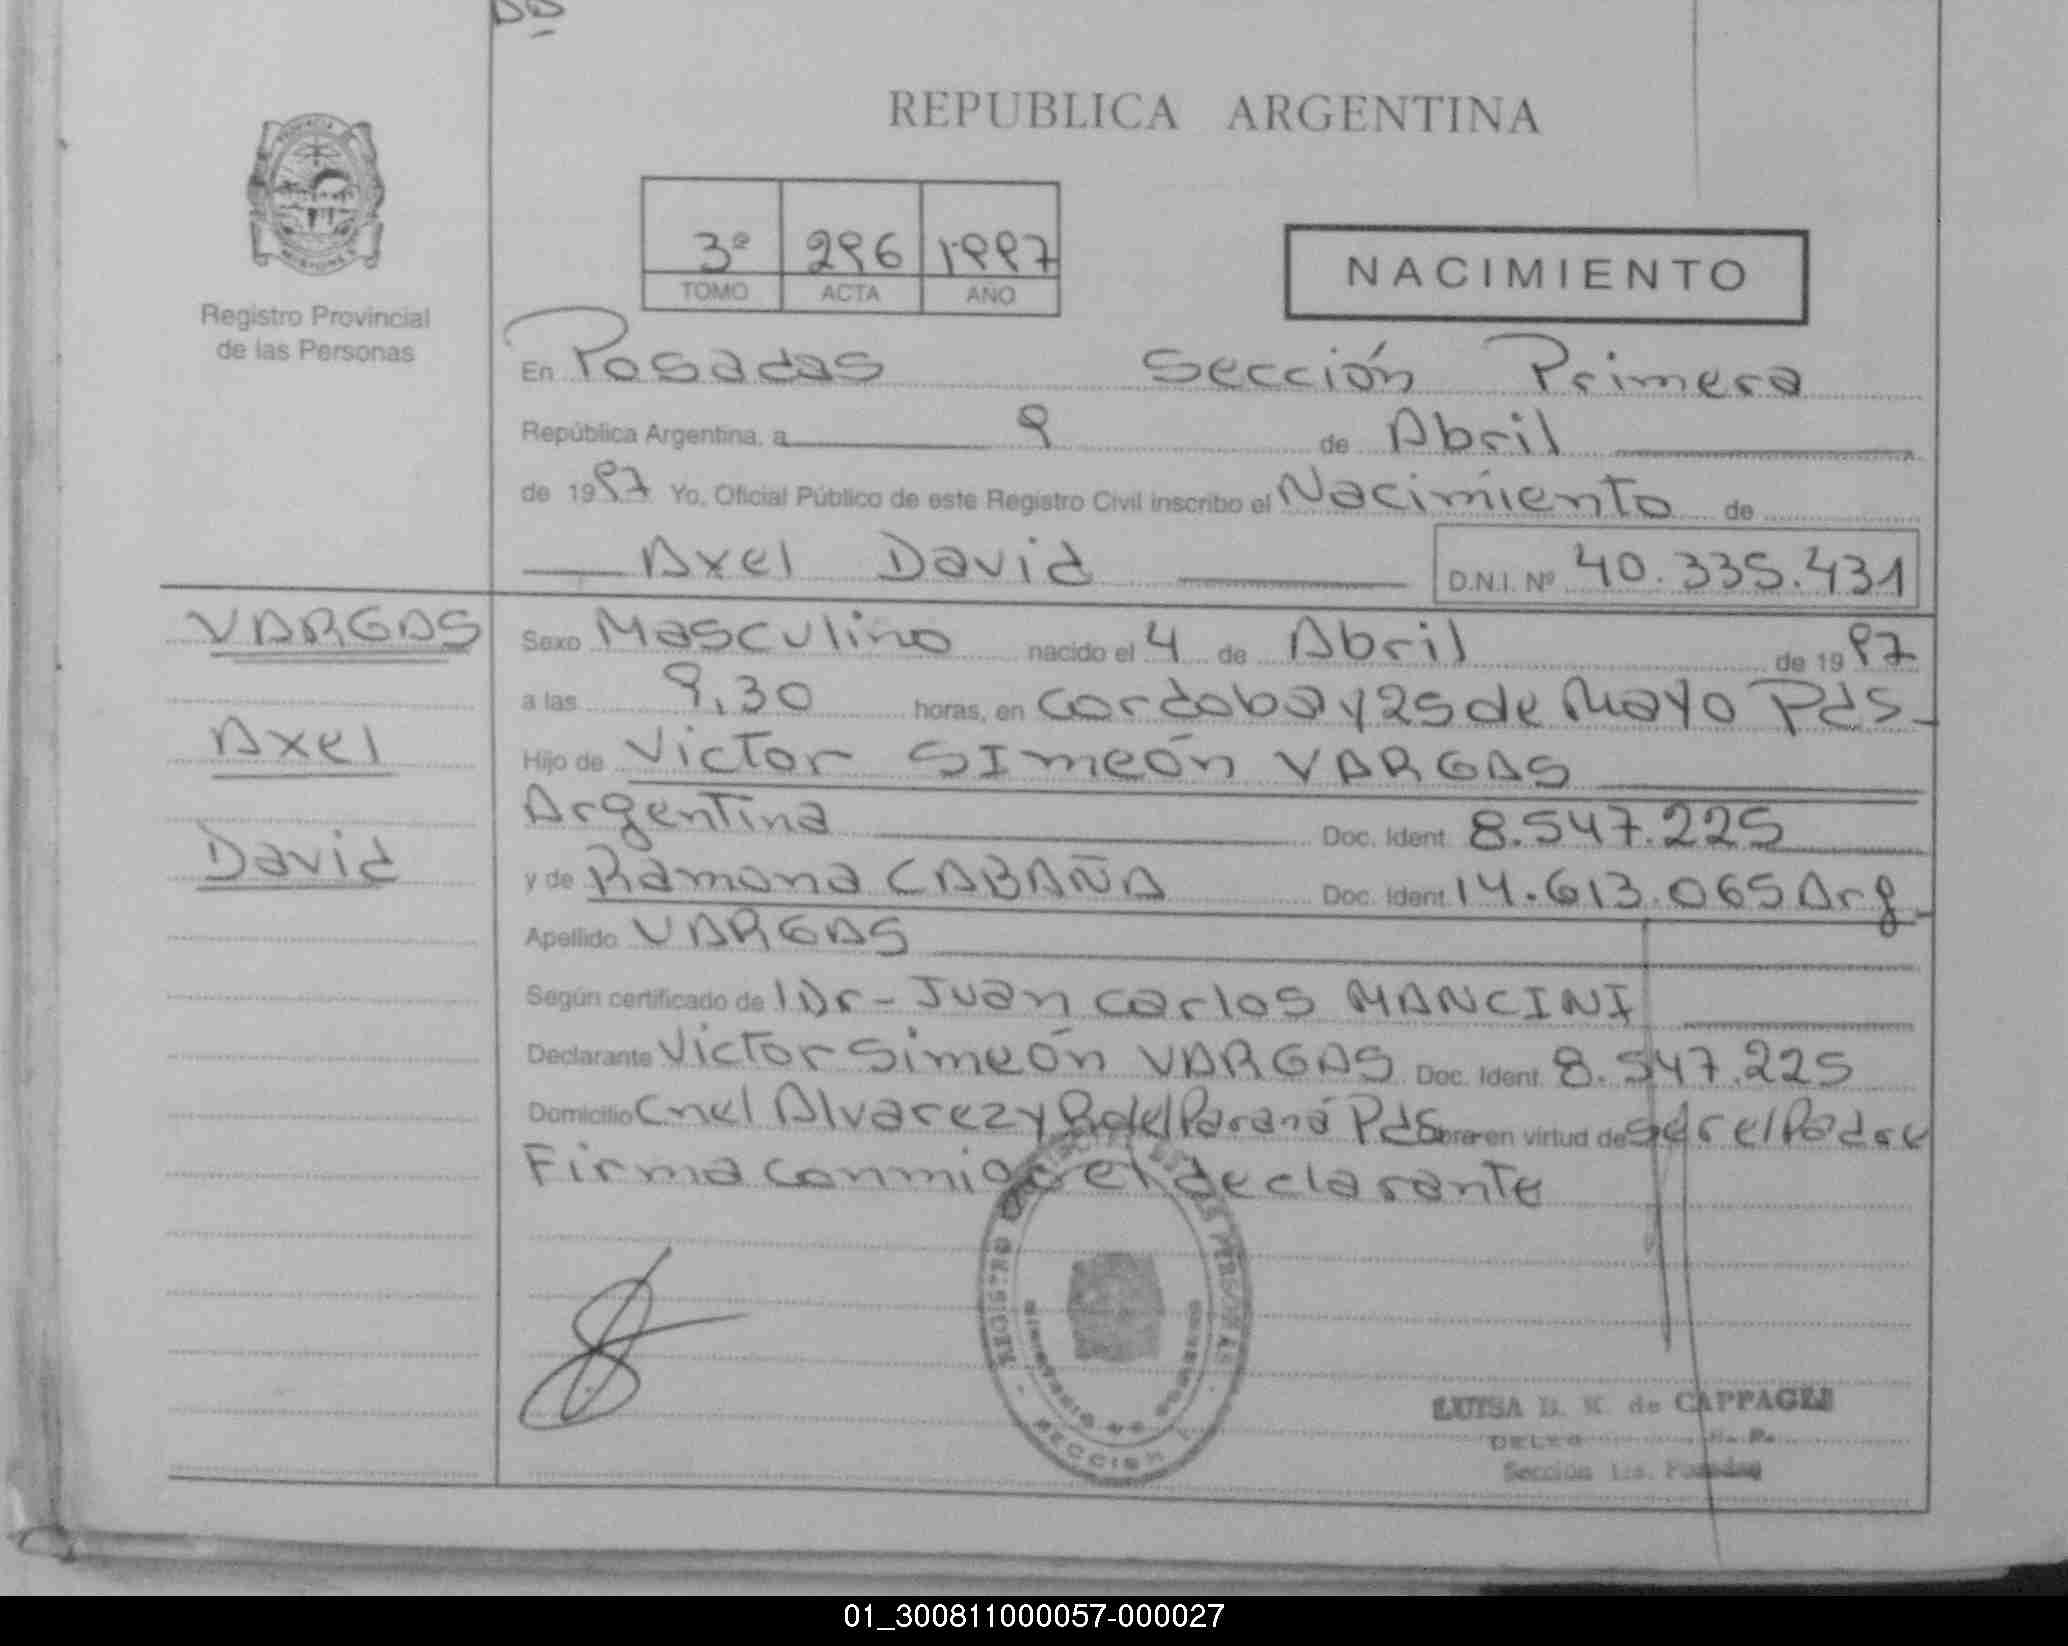 REPUBLICA ARGENTINA
PROVINCIA
MISIONES
Registro Provincial
de las Personas
3º 296 1997
TOMO ACTA AÑO
NACIMIENTO
En Posadas Sección Primera
República Argentina, a 9 de Abril
de 1997 Yo, Oficial Público de este Registro Civil inscribo el Nacimiento de
Axel David D.N.I. Nº 40.335.431
VARGAS
Axel
David
Sexo Masculino nacido el 4 de Abril de 1997
a las 9,30 horas, en Cordoba y 25 de Mayo Pds-
Hijo de Victor SImeón VARGAS
Argentina Doc. Ident. 8.547.225
y de Ramona CABAÑA Doc. Ident. 14.613.065 Arg-
Apellido VARGAS
Según certificado de Dr- Juan Carlos MANCINI
Declarante Victor Simeón VARGAS Doc. Ident. 8.547.225
Domicilio Cnel Alvarez y R del Paraná Pds obra en virtud de ser el Padre
Firma conmigo el declarante
REGISTRO DE LAS PERSONAS
MINISTERIO DE GOBIERNO
SECCION 1
LUISA de CAPPAGLI
Sección 1ra. Posadas
01_300811000057-000027